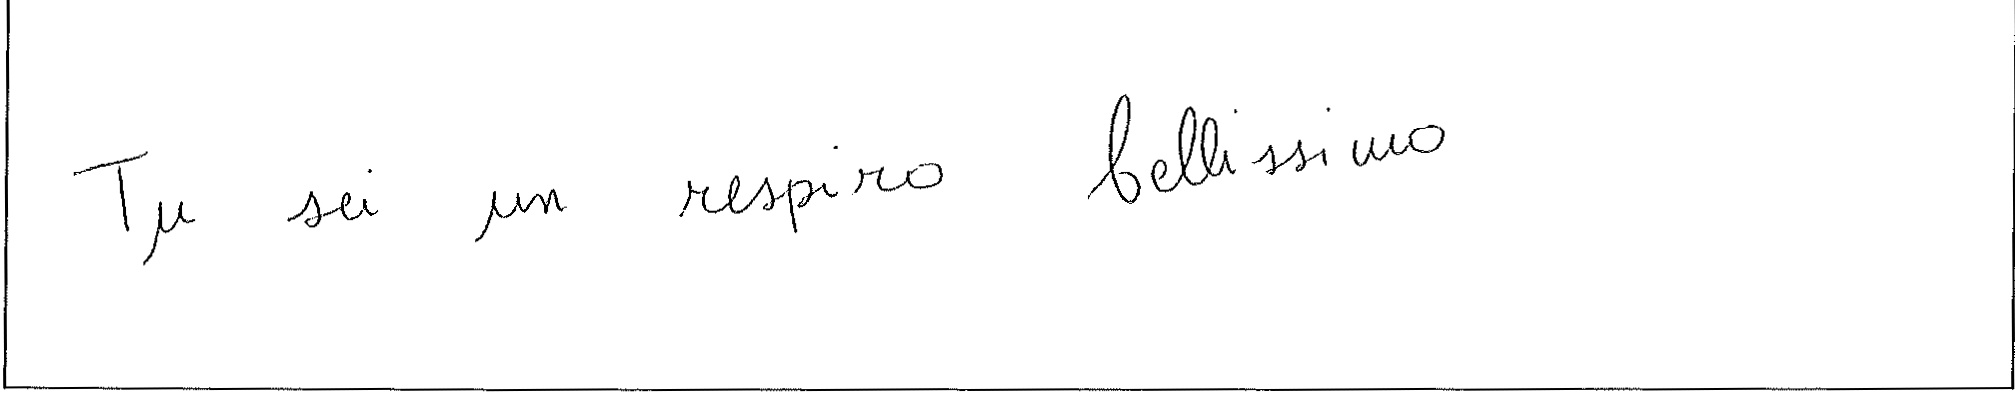 Tu sei un respiro bellissimo